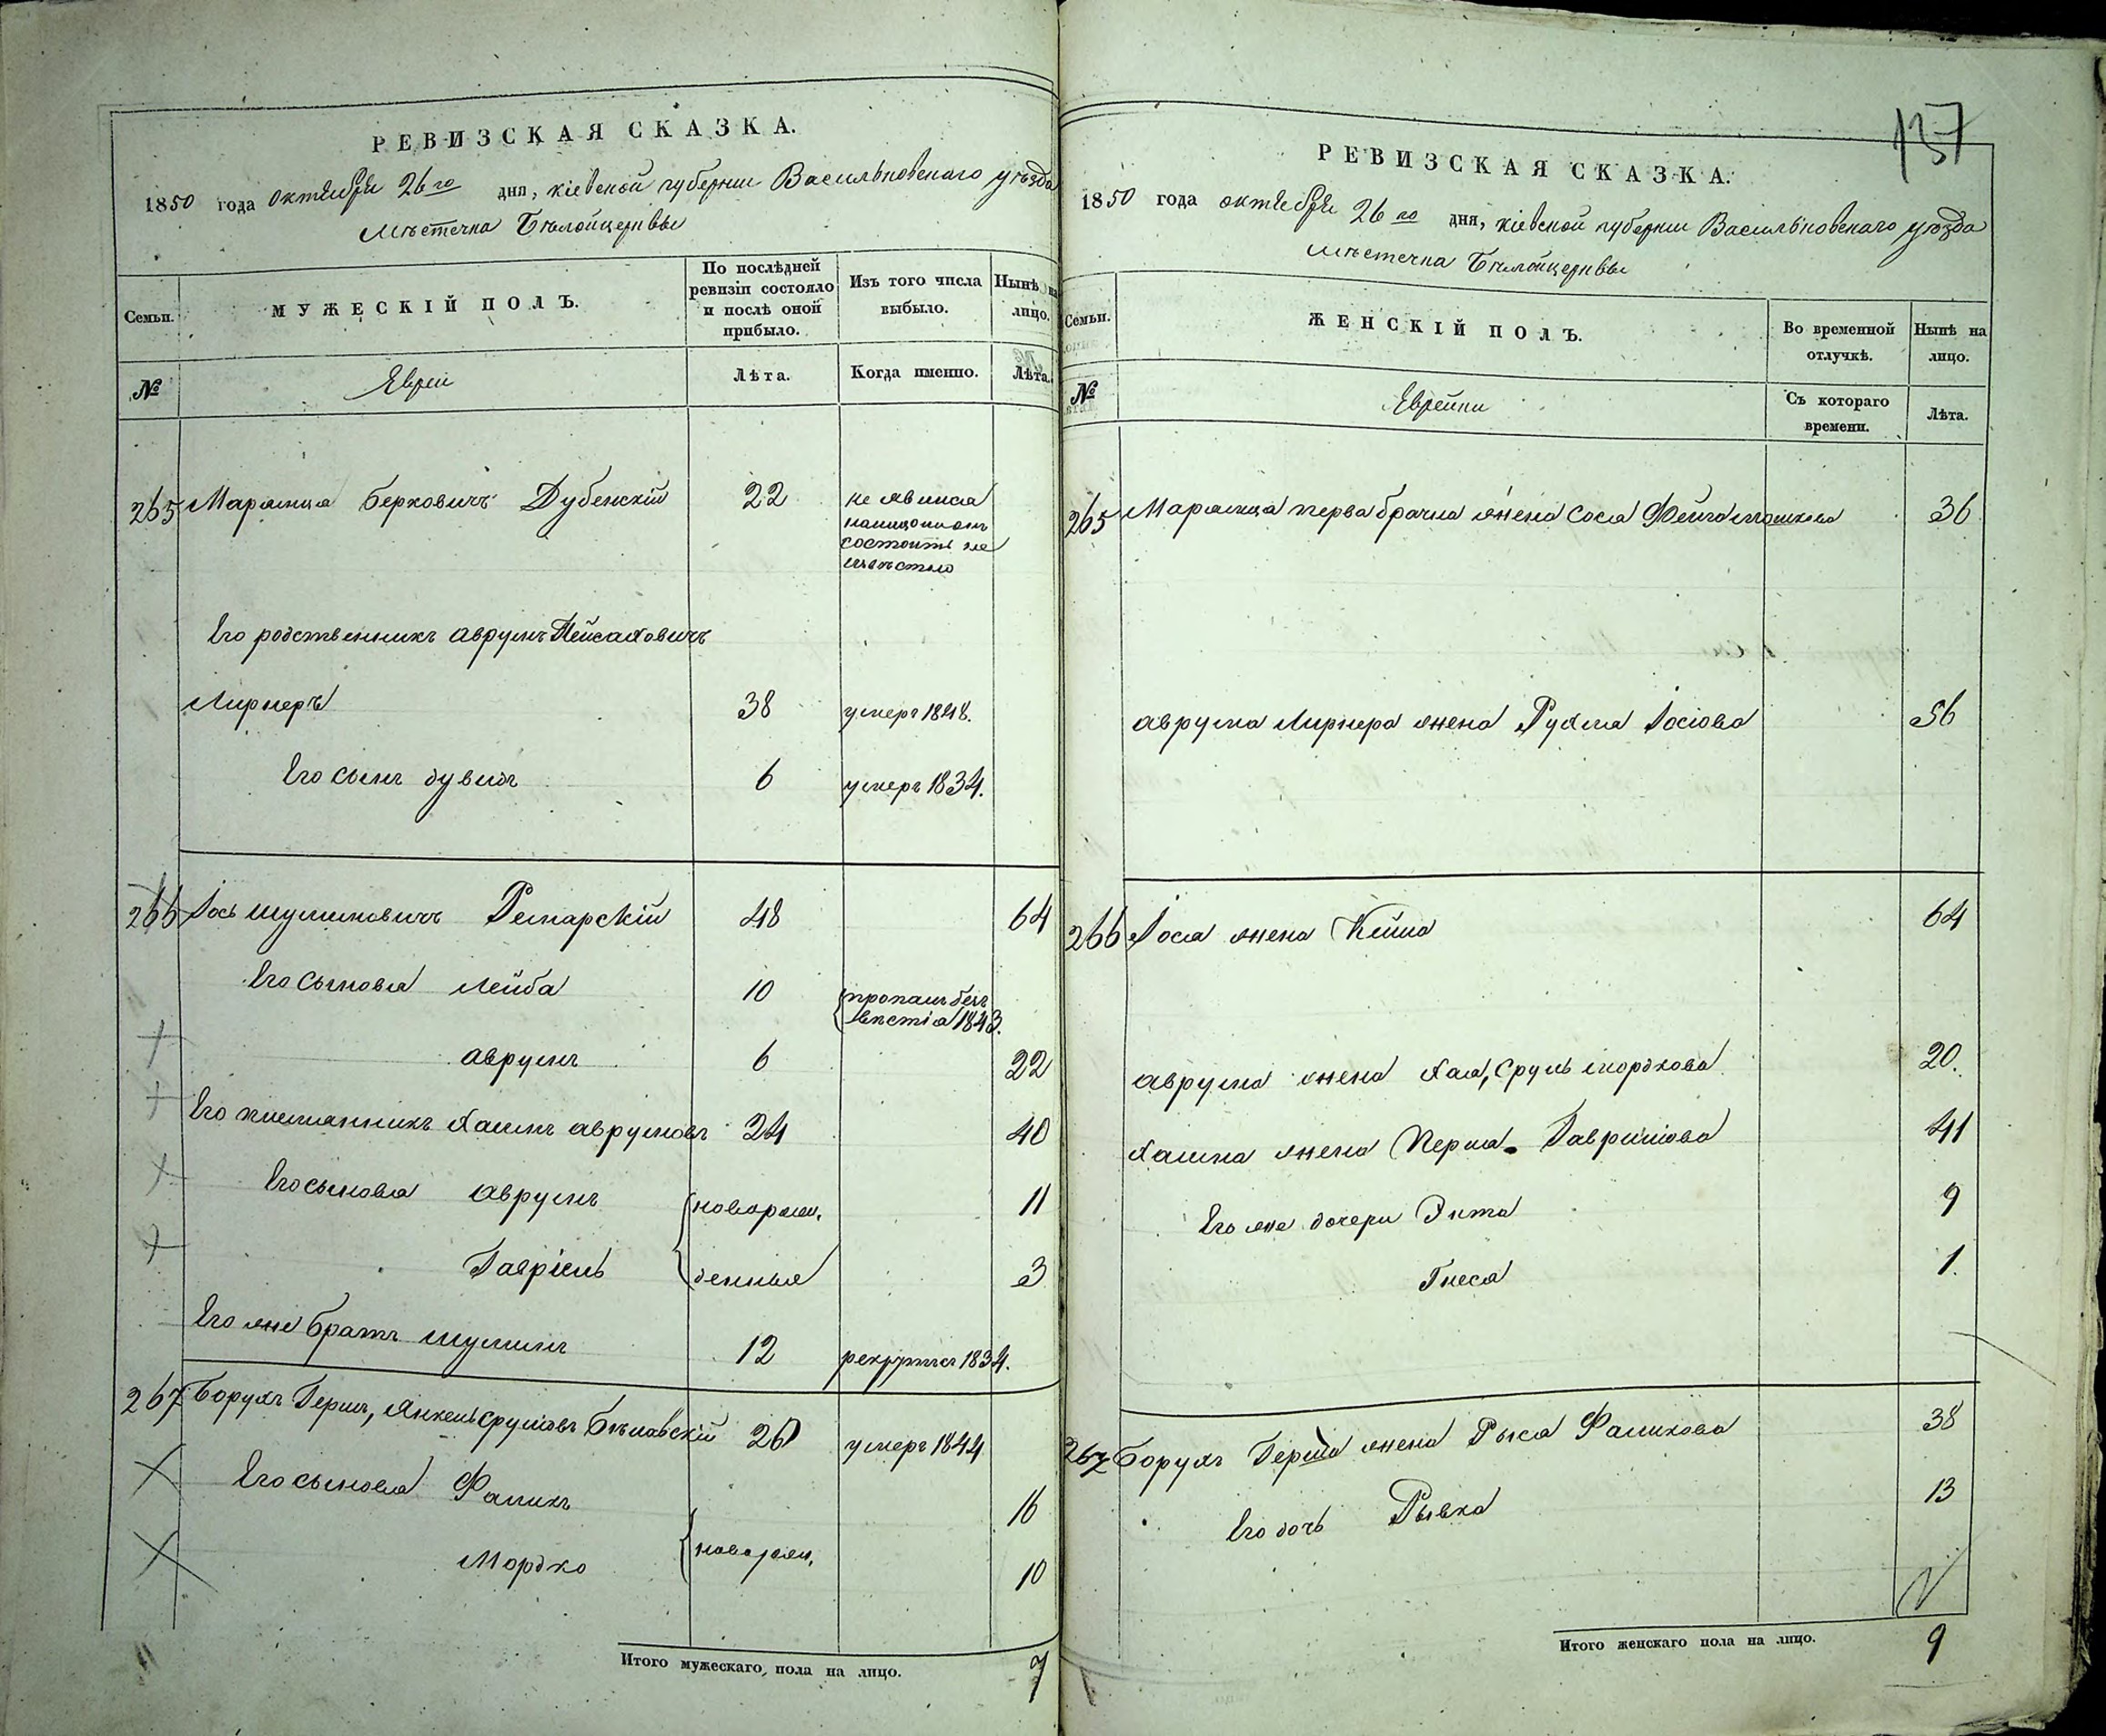 РЕВИЗСКАЯ СКАЗКА.
1850 года октября 26го дня, кіевской губерніи Васильковскаго уѣзда
Мѣстечка Бѣлойцерквы
Семьи.
МУЖЕСКІЙ ПОЛЪ.
По послѣдней ревизіи состояло и послѣ оной прибыло.
Изъ того числа выбыло.
Нынѣ на лицо.
№
Евреи
Лѣта.
Когда именно.
Лѣта.
265 Берковичъ Дубенскій 22 не
состоитъ
Его родственникъ Аврумъ Пейсаховичъ
Лирнеръ 38 умеръ 1848.
Его сынъ Дувидъ 6 умеръ 1834.
266 Іось Шулимовичъ 48 64
Его сыновья Лейба 10 пропалъ безъ
вѣстіа 1843.
Аврумъ 6 22
Его племянникъ Хаимъ Аврумовъ 24 40
Его сыновья Аврумъ новорож, 11
Гавріель денные 3
Его же братъ Шулимъ 12 рекрутъ 1834.
267 Борухъ Герш, Янкель Срулювъ Бѣлавскій 26 умеръ 1844
Его сыновья Фаликъ 16
новорож,
Мордко 10
Итого мужескаго пола на лицо. 7
137
РЕВИЗСКАЯ СКАЗКА.
1850 года октября 26го дня, кіевской губерніи Васильковскаго уѣзда
Мѣстечка Бѣлойцерквы
Семьи.
ЖЕНСКІЙ ПОЛЪ.
Во временной отлучкѣ.
Нынѣ на лицо.
№
Еврейки
Съ котораго времени.
Лѣта.
265 жена Сося Фейга Мошкова 36
Аврума Лирнера жена Рухля Іосіова 56
266 Іося жена Кейла 64
Аврума жена Хая, Сруль Мордкова 20.
Хаима жена Перля Гавриілова 41
Его же дочери Энта 9
Гнеся 1.
267 Борухъ Герша жена Рыся Фаликова 38
Его дочь Рывка 13
Итого женскаго пола на лицо. 9